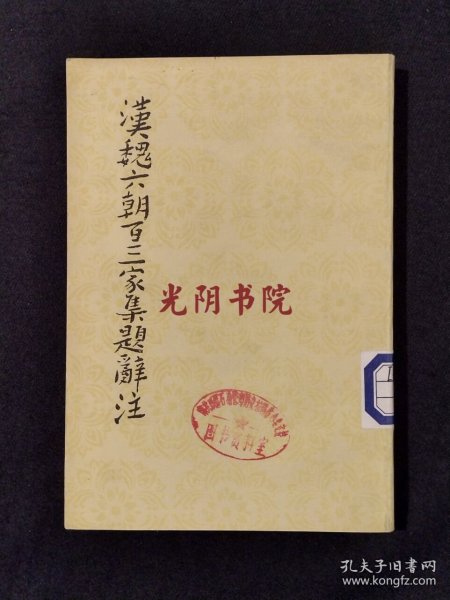 漢魏六朝百三家集題辭注
光阴书院
图书资料室
孔夫子旧书网
www.kongfz.com